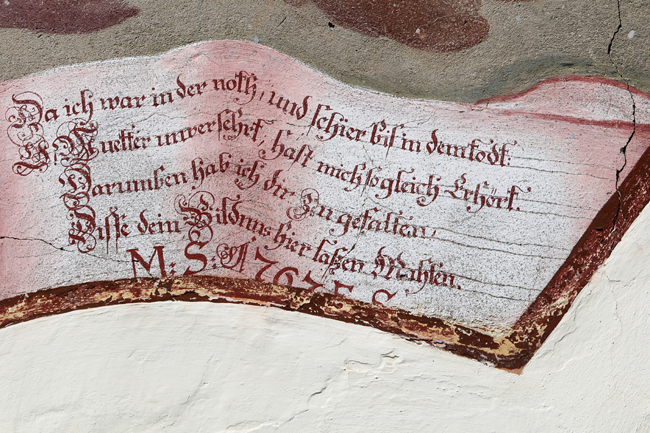 Da ich war in der noth, und schier bis in dem todt.
H. Muetter unversehrt, hast mich so gleich Erhört.
Darumben hab ich dir Zu gefallen,
Disse dein Bildnus hier lassen Mahlen.
M: S. A. 1767 F. S.